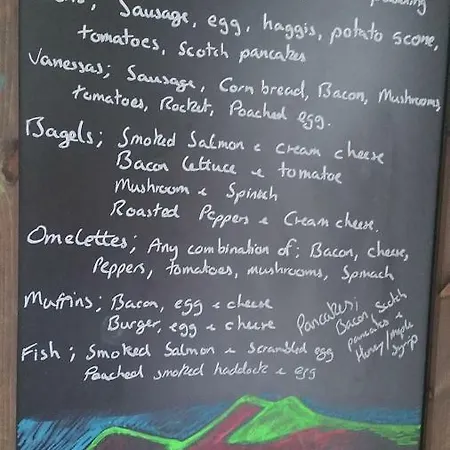 Sausage, egg, haggis, potato scone,
tomatoes, Scotch pancakes
Vanessas; Sausage, Corn bread, Bacon, Mushrooms,
tomatoes, Rocket, Poached egg.
Bagels; Smoked Salmon & Cream cheese
Bacon lettuce & tomatoe
Mushroom & Spinich
Roasted Peppers & Cream cheese.
Omelettes; Any combination of; Bacon, cheese,
Peppers, tomatoes, mushrooms, Spinach
Muffins; Bacon, egg & cheese
Burger, egg & cheese
Pancakes;
Bacon Scotch
pancakes &
Honey/maple
Syrip
Fish; Smoked Salmon & Scrambled egg
Poached smoked haddock & egg